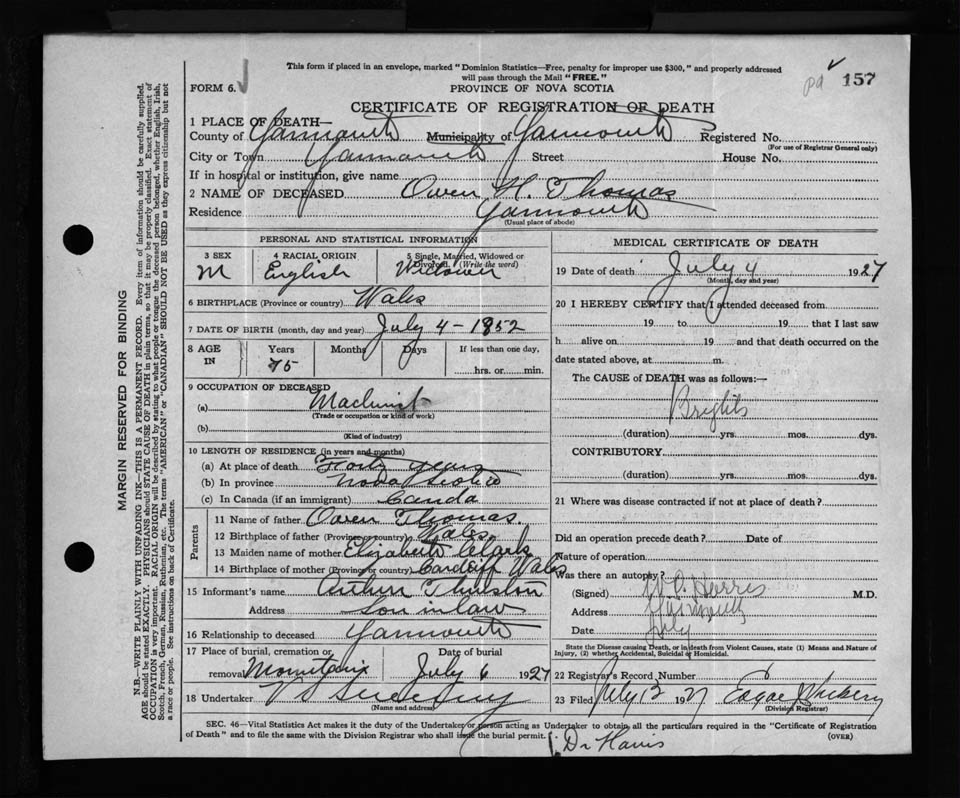 This form if placed in an envelope, marked "Dominion Statistics—Free, penalty for improper use $300," and properly addressed
will pass through the Mail "FREE."
FORM 6.
PROVINCE OF NOVA SCOTIA
157
CERTIFICATE OF REGISTRATION OF DEATH
1 PLACE OF DEATH—
County of Yarmouth Municipality of Yarmouth Registered No.
(For use of Registrar General only)
City or Town Yarmouth Street House No.
If in hospital or institution, give name
2 NAME OF DECEASED Owen H. Thomas
Residence Yarmouth
(Usual place of abode)
PERSONAL AND STATISTICAL INFORMATION
3 SEX 4 RACIAL ORIGIN 5 Single, Married, Widowed or Divorced. (Write the word)
M English Widower
6 BIRTHPLACE (Province or country) Wales
7 DATE OF BIRTH (month, day and year) July 4 - 1852
8 AGE IN Years Months Days If less than one day,
75 hrs. or min.
9 OCCUPATION OF DECEASED
(a) Machinist
(Trade or occupation or kind of work)
(b)
(Kind of industry)
10 LENGTH OF RESIDENCE (in years and months)
(a) At place of death Forty years
(b) In province Nova Scotia
(c) In Canada (if an immigrant) Canda
Parents
11 Name of father Owen Thomas
12 Birthplace of father (Province or country) Wales
13 Maiden name of mother Elizabeth Clark
14 Birthplace of mother (Province or country) Cardiff Wales
15 Informant's name Arthur Thurston
Address Son in law
16 Relationship to deceased Yarmouth
17 Place of burial, cremation or removal Date of burial
July 6 1927
18 Undertaker
(Name and address)
MEDICAL CERTIFICATE OF DEATH
19 Date of death July 4 1927
(Month, day and year)
20 I HEREBY CERTIFY that I attended deceased from
19 to 19 that I last saw
h alive on 19 and that death occurred on the
date stated above, at m.
The CAUSE of DEATH was as follows:—
Brights
(duration) yrs. mos. dys.
CONTRIBUTORY
(duration) yrs. mos. dys.
21 Where was disease contracted if not at place of death?
Did an operation precede death? Date of
Nature of operation
Was there an autopsy?
(Signed) Harris M.D.
Address Yarmouth
Date July
State the Disease causing Death, or in death from Violent Causes, state (1) Means and Nature of
Injury, (2) whether Accidental, Suicidal or Homicidal.
22 Registrar's Record Number
23 Filed July 13 1927 Edgar J
(Division Registrar)
SEC. 46—Vital Statistics Act makes it the duty of the Undertaker or person acting as Undertaker to obtain all the particulars required in the "Certificate of Registration
of Death" and to file the same with the Division Registrar who shall issue the burial permit.
(OVER)
Dr Harris
MARGIN RESERVED FOR BINDING
N.B.—WRITE PLAINLY WITH UNFADING INK—THIS IS A PERMANENT RECORD. Every item of information should be carefully supplied.
AGE should be stated EXACTLY. PHYSICIANS should STATE CAUSE OF DEATH in plain terms, so that it may be properly classified. Exact statement of
OCCUPATION is very important. RACIAL ORIGIN will be described by stating to what people or tongue the deceased person belonged, whether English, Irish,
Scotch, French, German, Russian, Ruthenian, etc. The terms "AMERICAN" or "CANADIAN" SHOULD NOT BE USED as they express citizenship but not
a race or people. See instructions on back of Certificate.